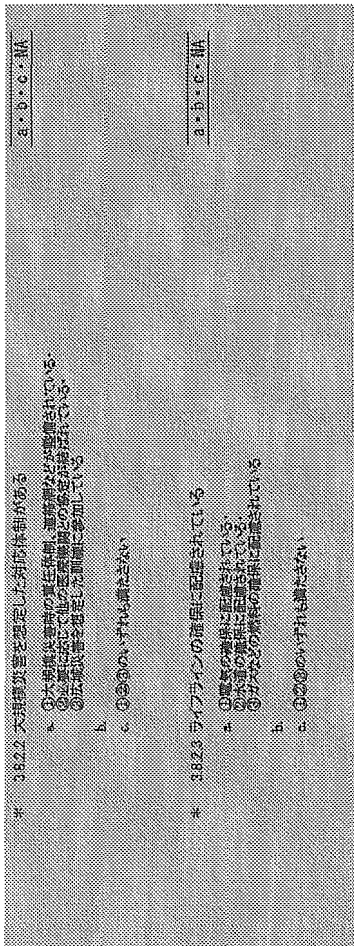 * 3.8.2.2 大規模災害を想定した対応体制がある
a・b・c・NA
a. ①大規模災害時の責任体制、連絡網などが整備されている。
②必要に応じて他の医療機関との協定が結ばれている。
③広域災害を想定した訓練に参加している
b.
c. ①②③のいずれも満たさない
* 3.8.2.3 ライフラインの確保に配慮されている
a・b・c・NA
a. ①電気の確保に配慮されている。
②水道の確保に配慮されている。
③ガスなどの燃料の確保に配慮されている
b.
c. ①②③のいずれも満たさない